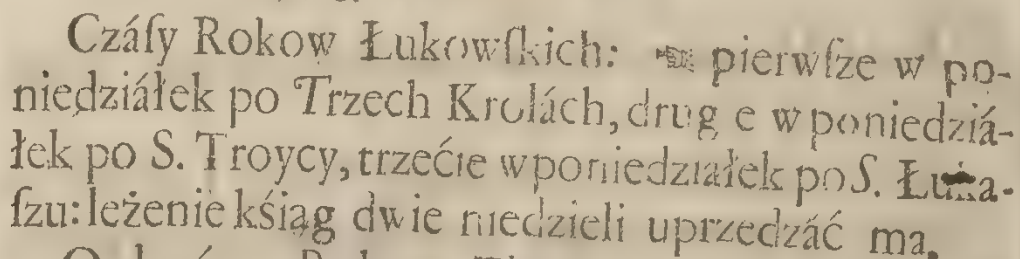 Czáſy Rokow Łukowſkich: ☜ pierwſze w po-
niedziáłek po Trzech Krolách, drug e w poniedziá-
łek po S. Troycy, trzećie w poniedziałek po S. Łuka-
ſzu: leżenie kśiąg dwie niedzieli uprzedzáć ma.